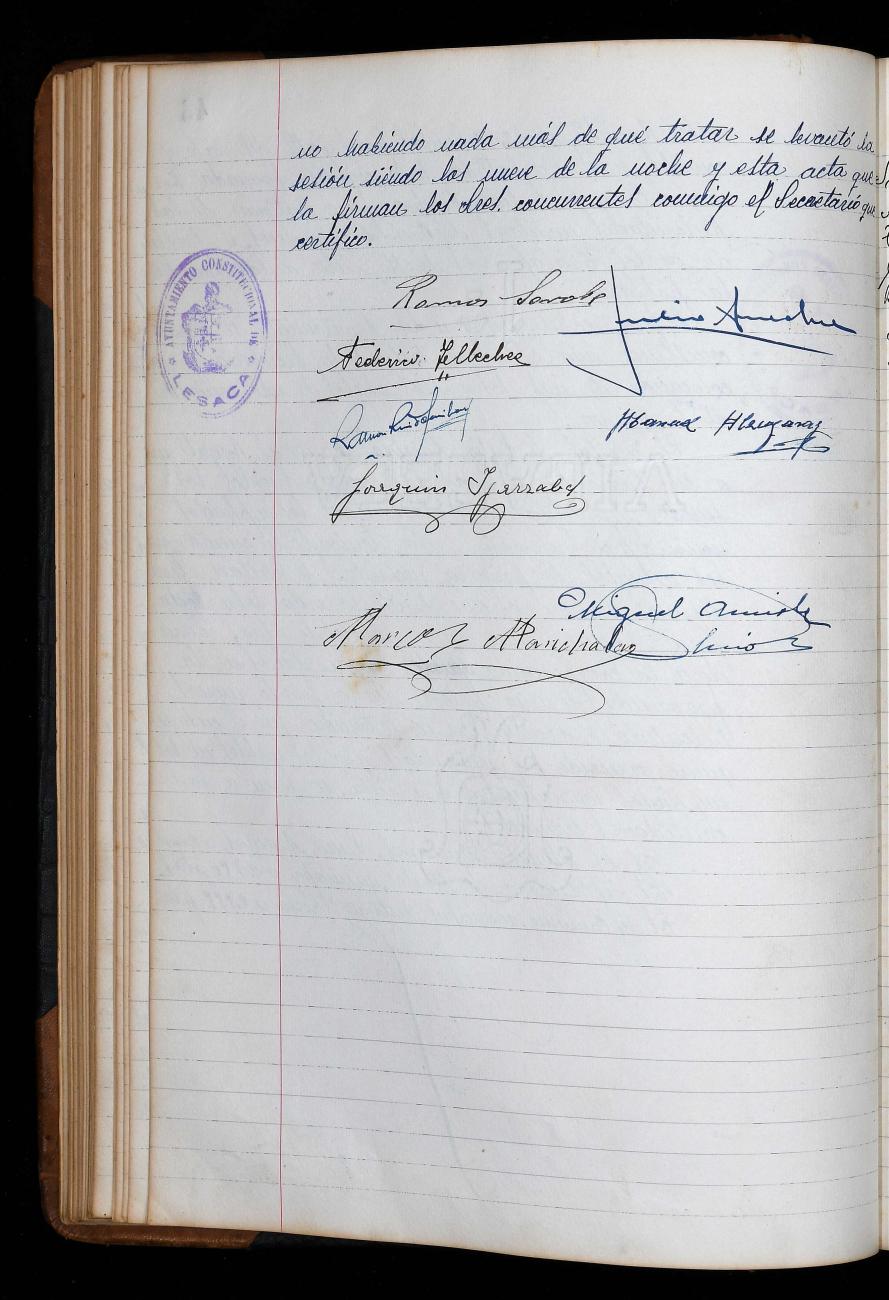 no habiendo nada más de qué tratar se levantó la
sesión siendo las nueve de la noche y esta acta que
la firman los Sres. concurrentes conmigo el Secretario que
certifico.
AYUNTAMIENTO CONSTITUCIONAL DE
LESACA
Ramos
Federico Tellechea
Ramon
Manuel
Joaquin Igarzabal
Miguel
Marcos Marichalar